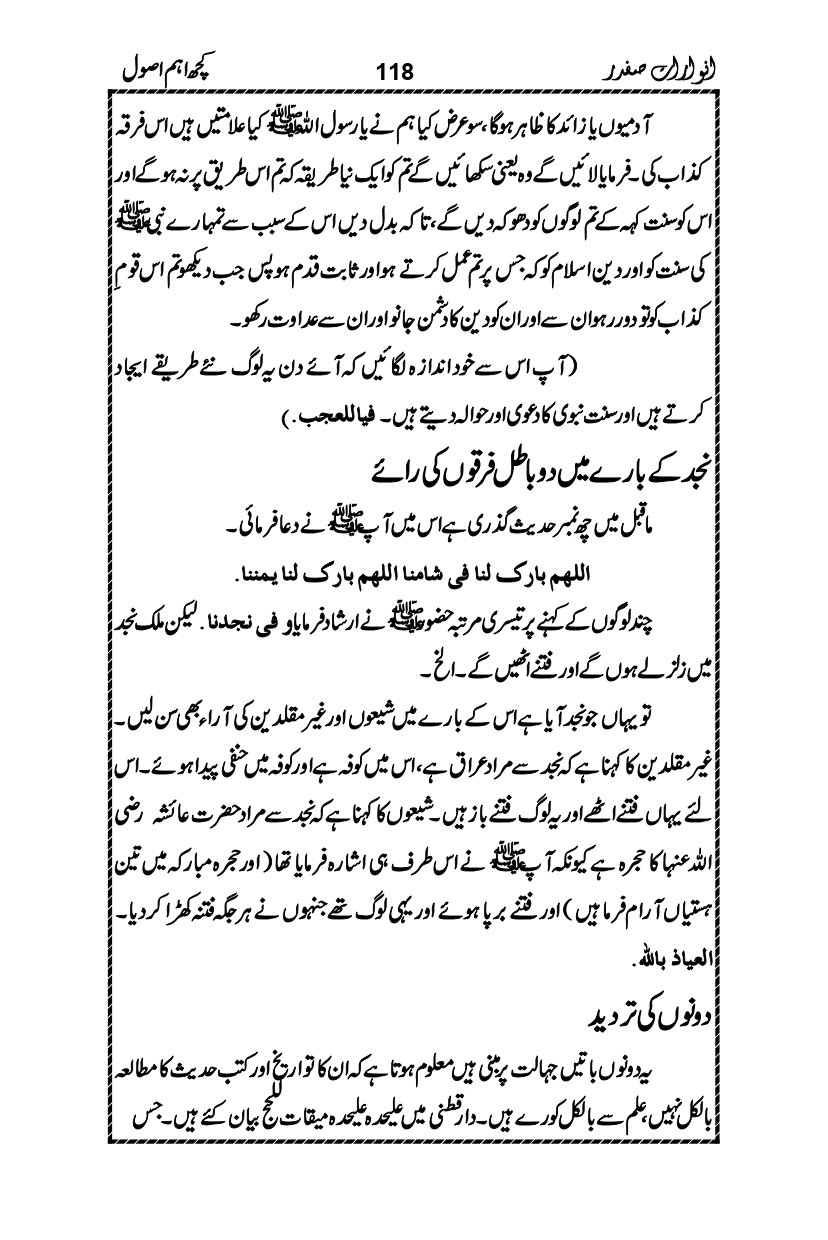 انوارات صفدر 118 کچھ اہم اصول
آدمیوں یا زائد کا ظاہر ہوگا، سو عرض کیا ہم نے یا رسول اللہ ﷺ کیا علامتیں ہیں اس فرقہ
کذاب کی۔ فرمایا لائیں گے وہ یعنی سکھائیں گے تم کو ایک نیا طریقہ کہ تم اس طریق پر نہ ہو گے اور
اس کو سنت کہہ کے تم لوگوں کو دھوکہ دیں گے، تاکہ بدل دیں اس کے سبب سے تمہارے نبی ﷺ
کی سنت کو اور دین اسلام کو کہ جس پر تم عمل کرتے ہو اور ثابت قدم ہو پس جب دیکھو تم اس قومِ
کذاب کو تو دور رہو ان سے اور ان کو دین کا دشمن جانو اور ان سے عداوت رکھو۔
(آپ اس سے خود اندازہ لگائیں کہ آئے دن یہ لوگ نئے طریقے ایجاد
کرتے ہیں اور سنت نبوی کا دعویٰ اور حوالہ دیتے ہیں۔ فیاللعجب.)
نجد کے بارے میں دو باطل فرقوں کی رائے
ماقبل میں چھ نمبر حدیث گذری ہے اس میں آپ ﷺ نے دعا فرمائی۔
اللهم بارک لنا فی شامنا اللهم بارک لنا یمننا.
چند لوگوں کے کہنے پر تیسری مرتبہ حضور ﷺ نے ارشاد فرمایا و فی نجدنا. لیکن ملک نجد
میں زلزلے ہوں گے اور فتنے اٹھیں گے۔ الخ۔
تو یہاں جو نجد آیا ہے اس کے بارے میں شیعوں اور غیر مقلدین کی آراء بھی سن لیں۔
غیر مقلدین کا کہنا ہے کہ نجد سے مراد عراق ہے، اس میں کوفہ ہے اور کوفہ میں حنفی پیدا ہوئے۔ اس
لئے یہاں فتنے اٹھے اور یہ لوگ فتنے باز ہیں۔ شیعوں کا کہنا ہے کہ نجد سے مراد حضرت عائشہ رضی
اللہ عنہا کا حجرہ ہے کیونکہ آپ ﷺ نے اس طرف ہی اشارہ فرمایا تھا (اور حجرہ مبارکہ میں تین
ہستیاں آرام فرما ہیں) اور فتنے برپا ہوئے اور یہی لوگ تھے جنہوں نے ہر جگہ فتنہ کھڑا کر دیا۔
العیاذ باللہ.
دونوں کی تردید
یہ دونوں باتیں جہالت پر مبنی ہیں معلوم ہوتا ہے کہ ان کا تواریخ اور کتب حدیث کا مطالعہ
بالکل نہیں، علم سے بالکل کورے ہیں۔ دارقطنی میں علیحدہ علیحدہ میقات للحج بیان کئے ہیں۔ جس